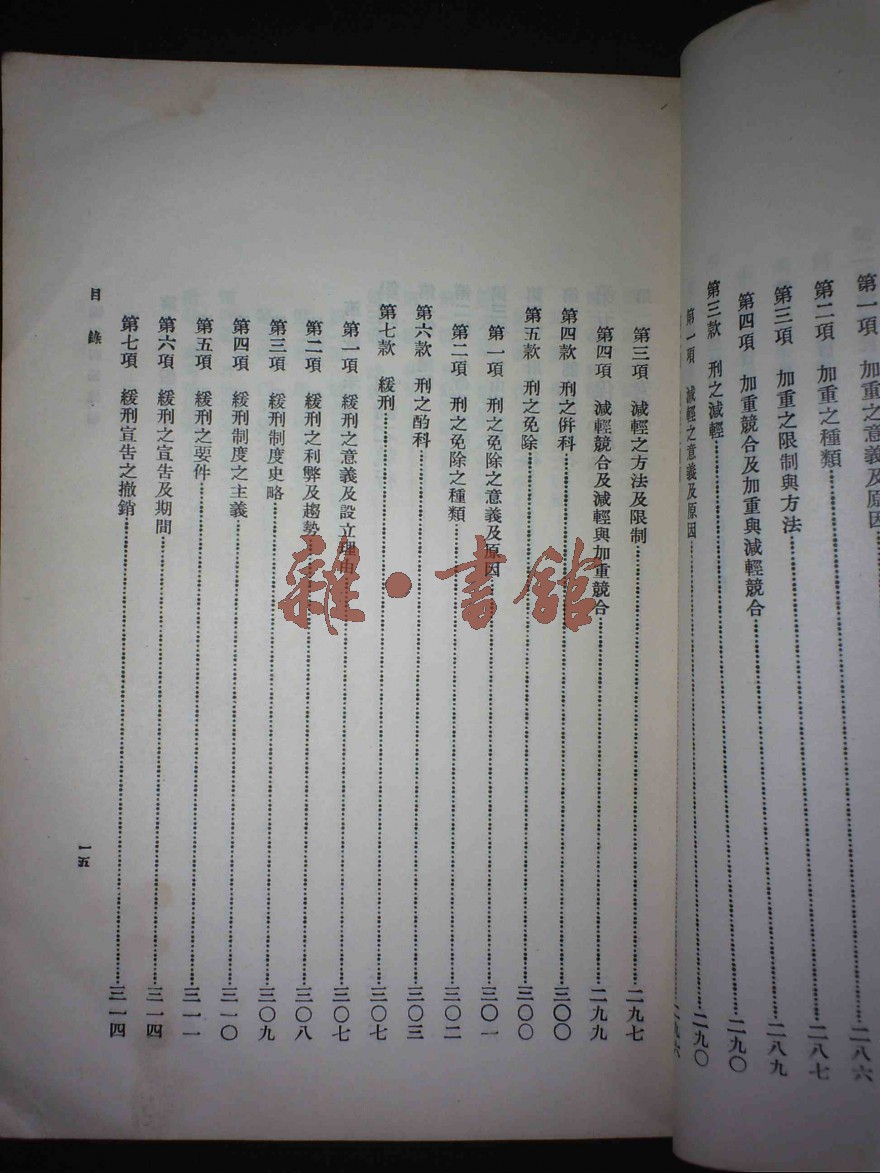 第一項　加重之意義及原因……二八六
第二項　加重之種類……二八七
第三項　加重之限制與方法……二八九
第四項　加重競合及加重與減輕競合……二九〇
第三款　刑之減輕……二九〇
第一項　減輕之意義及原因……二九六
第三項　減輕之方法及限制……二九七
第四項　減輕競合及減輕與加重競合……二九九
第四款　刑之併科……三〇〇
第五款　刑之免除……三〇〇
第一項　刑之免除之意義及原因……三〇一
第二項　刑之免除之種類……三〇二
第六款　刑之酌科……三〇三
第七款　緩刑……三〇七
第一項　緩刑之意義及設立理由……三〇七
第二項　緩刑之利弊及趨勢……三〇八
第三項　緩刑制度史略……三〇九
第四項　緩刑制度之主義……三一〇
第五項　緩刑之要件……三一一
第六項　緩刑之宣告及期間……三一四
第七項　緩刑宣告之撤銷……三一四
目錄
一五
雜·書館